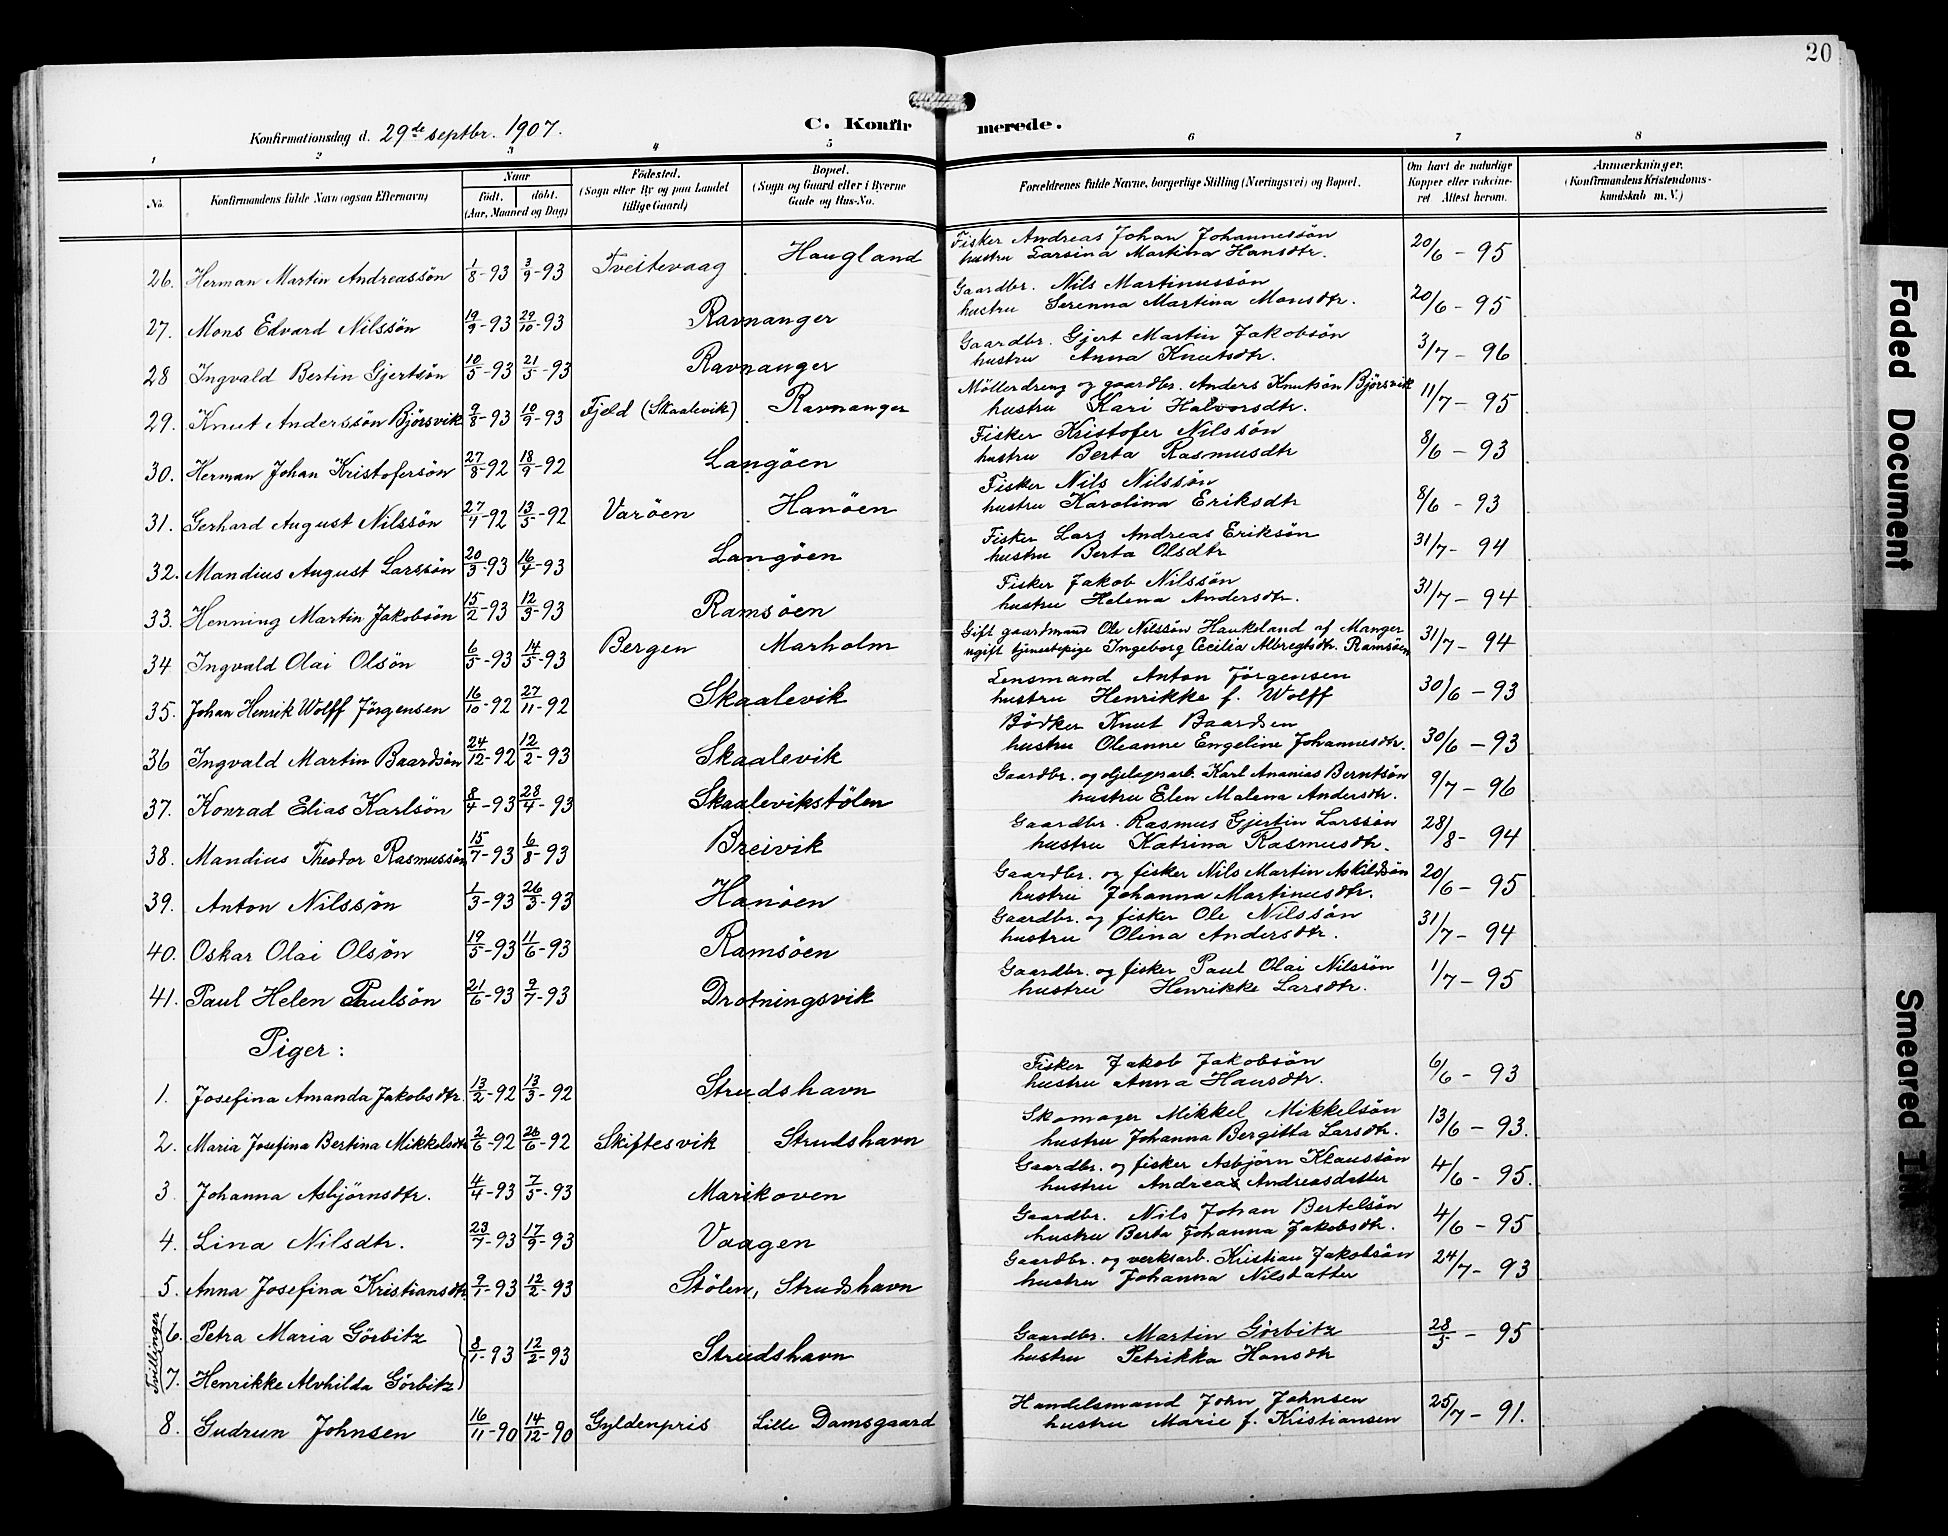 20
Konfirmationsdag d. 29de septbr. 1907.
C. Konfirmerede.
1 2 3 4 5 6 7 8
No. Konfirmandens fulde Navn (ogsaa Efternavn) Naar født. døbt. (Aar, Maaned og Dag) Fødested. (Sogn eller By og paa Landet tillige Gaard) Bopæl. (Sogn og Gaard eller i Byerne Gade og Hus-No. Forældrenes fulde Navne, borgerlige Stilling (Næringsvei) og Bopæl. Om havt de naturlige Kopper eller vakcineret Attest herom. Anmærkninger. (Konfirmandens Kristendomskundskab m. V.)
26. Herman Martin Andreassön 1/8-93 3/9-93 Tveitevaag Haugland Fisker Andreas Johan Johannessön hustru Larsina Martina Hansdtr. 20/6 - 95
27. Mons Edvard Nilssön 19/9-93 29/10-93 Ravnanger Gaardbr. Nils Martinussön hustru Serenna Martina Monsdtr. 20/6 - 95
28 Ingvald Bertin Gjertsön 10/5-93 21/5-93 Ravnanger Gaardbr. Gjert Martin Jakobsön hustru Anna Knutsdtr. 3/7 - 96
29. Knut Anderssön Björsvik 9/8-93 10/9-93 Fjeld (Skaalevik) Ravnanger Möllerdreng og gaardbr. Anders Knutsön Björsvik hustru Kari Halvorsdtr. 11/7 - 95
30. Herman Johan Kristofersön 27/8-92 18/9-92 Langöen Fisker Kristofer Nilssön hustru Berta Rasmusdtr 8/6 - 93
31. Gerhard August Nilssön 27/4-92 13/5-92 Varöen Hanöen Fisker Nils Nilssön hustru Karolina Eriksdtr 8/6 - 93
32. Mandius August Larssön 20/3-93 16/4-93 Langöen Fisker Lars Andreas Eriksön hustru Berta Olsdtr 31/7 - 94
33. Henning Martin Jakobsön 15/2-93 12/3-93 Ramsöen Fisker Jakob Nilssön hustru Helena Andersdtr. 31/7 - 94
34 Ingvald Olai Olsön 6/5-93 14/5-93 Bergen Marholm Gift gaardmand Ole Nilssön Haukeland af Manger ugift tjenestepige Ingeborg Cecilia Albregtsdtr. Ramsöen 31/7 - 94
35. Johan Henrik Wolff Jörgensen 16/10-92 27/11-92 Skaalevik Lensmand Anton Jörgensen hustru Henrikke f. Wolff 30/6 - 93
36 Ingvald Martin Baardsön 24/12-92 12/2-93 Skaalevik Bödker Knut Baardsen hustru Oleanne Engeline Johannesdtr. 30/6 - 93
37. Konrad Elias Karlsön 8/4-93 28/4-93 Skaalevikstölen Gaardbr. og oljelagerarb. Karl Ananias Berntsön hustru Elen Malena Andersdtr. 9/7 - 96
38. Mandius Theodor Rasmussön 15/7-93 6/8-93 Breivik Gaardbr. Rasmus Gjertin Larssön hustru Katrina Rasmusdtr. 28/8 - 94
39. Anton Nilssön 1/3-93 26/3-93 Hanöen Gaardbr. og fisker Nils Martin Askildsön hustru Johanna Martinusdtr. 20/6 - 95
40. Oskar Olai Olsön 19/5-93 11/6-93 Ramsöen Gaardbr. og fisker Ole Nilssön hustru Olina Andersdtr. 31/7 - 94
41. Paul Helen Paulsön 21/6-93 9/7-93 Drotningsvik Gaardbr. og fisker Paul Olai Nilssön hustru Henrikke Larsdtr. 1/7 - 95
Piger:
1. Josefina Amanda Jakobsdtr. 13/2-92 13/3-92 Strudshavn Fisker Jakob Jakobsön hustru Anna Hansdtr. 6/6 - 93
2. Maria Josefina Bertina Mikkelsdtr 2/6-92 26/6-92 Skiftesvik Strudshavn Skomager Mikkel Mikkelsön hustru Johanna Bergitta Larsdtr. 13/6 - 93.
3. Johanna Asbjörnsdtr. 4/4-93 7/5-93 Marikoven Gaardbr. og fisker Asbjörn Klaussön hustru Andrea Andreasdatter 4/6 - 95.
4. Lina Nilsdtr. 23/7-93 17/9-93 Vaagen Gaardbr. Nils Johan Bertelsön hustru Berta Johanna Jakobsdtr. 4/6 - 95
5. Anna Josefina Kristiansdtr. 9/1-93 12/2-93 Stölen, Strudshavn Gaardbr. og verksarb. Kristian Jakobsön hustru Johanna Nilsdatter 24/7 - 93
Tvillinger
6. Petra Maria Görbitz 8/1-93 12/2-93 Strudshavn Gaardbr. Martin Görbitz hustru Petrikka Hansdtr 28/5 - 95
7. Henrikke Alvhilda Görbitz
8. Gudrun Johnsen 16/11-90 14/12-90 Gyldenpris Lille Damsgaard Handelsmand John Johnsen hustru Marie f. Kristiansen 25/7 - 91.
Faded Document
Smeared Ink